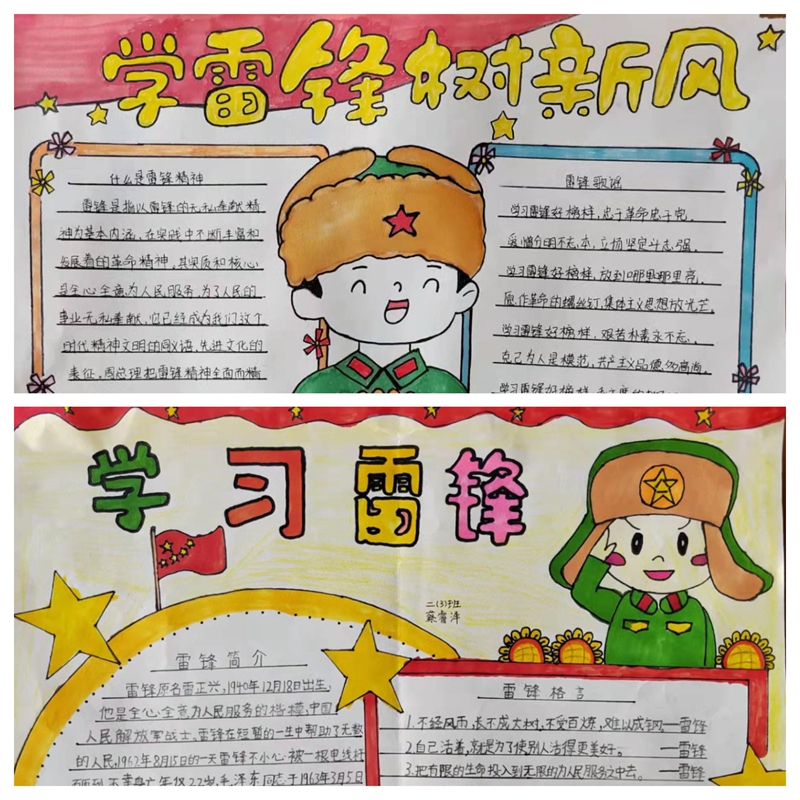 学雷锋树新风
什么是雷锋精神
雷锋是指以雷锋的无私奉献精
神为基本内涵,在实践中不断丰富和
发展着的革命精神,其实质和核心
是全心全意为人民服务,为了人民的
事业无私奉献,它已经成为我们这个
时代精神文明的同义语,先进文化的
表征。周总理把雷锋精神全面而精
雷锋歌谣
学习雷锋好榜样,忠于革命忠于党。
爱憎分明不忘本,立场坚定斗志强。
学习雷锋好榜样,放到哪里哪里亮。
愿作革命的螺丝钉,集体主义思想放光芒。
学习雷锋好榜样,艰苦朴素永不忘。
克己为人是模范,共产主义品德多高尚。
学习雷锋好榜样
学习雷锋
二(3)班
雷锋简介
雷锋原名雷正兴,1940年12月18日出生,
他是全心全意为人民服务的楷模,中国
人民解放军战士,雷锋在短暂的一生中帮助了无数
的人民,1962年8月15日的一天雷锋不小心被一根电线杆
不幸身亡年仅22岁,毛泽东同志于1963年3月5日
雷锋格言
1.不经风雨,长不成大树,不受百炼,难以成钢。—雷锋
2.自己活着,就是为了使别人活得更美好。—雷锋
3.把有限的生命投入到无限的为人民服务之中去。—雷锋